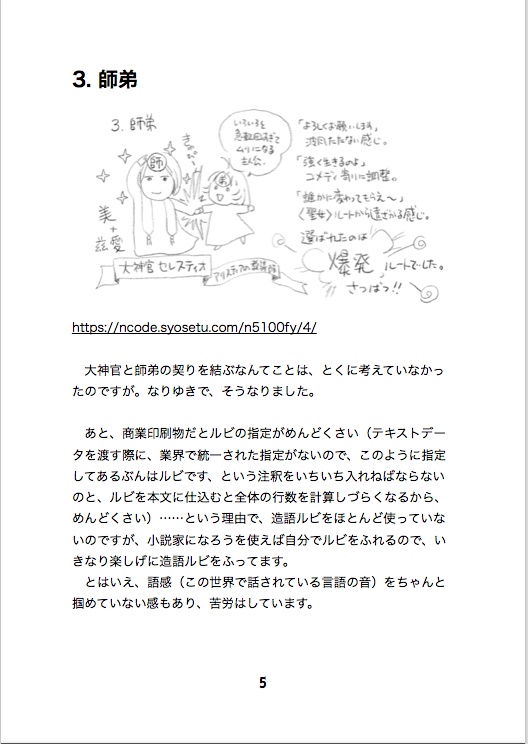 3. 師弟
3. 師弟
いろいろを
主人公。
師
弟
美
+
慈愛
大神官 セレスティオ
「よろしくお願いします」
「強く生きるのよ」
コメディ寄りに調整。
「誰かに変わってもらえ〜」
〈聖女〉ルートから遠ざかる感じ。
選ばれたのは
「爆発」ルートでした。
さつばつ!!
https://ncode.syosetu.com/n5100fy/4/
大神官と師弟の契りを結ぶなんてことは、とくに考えていなかっ
たのですが。なりゆきで、そうなりました。
あと、商業印刷物だとルビの指定がめんどくさい（テキストデー
タを渡す際に、業界で統一された指定がないので、このように指定
してあるぶんはルビです、という注釈をいちいち入れねばならない
のと、ルビを本文に仕込むと全体の行数を計算しづらくなるから、
めんどくさい）……という理由で、造語ルビをほとんど使っていな
いのですが、小説家になろうを使えば自分でルビをふれるので、い
きなり楽しげに造語ルビをふってます。
とはいえ、語感（この世界で話されている言語の音）をちゃんと
掴めていない感もあり、苦労はしています。
5